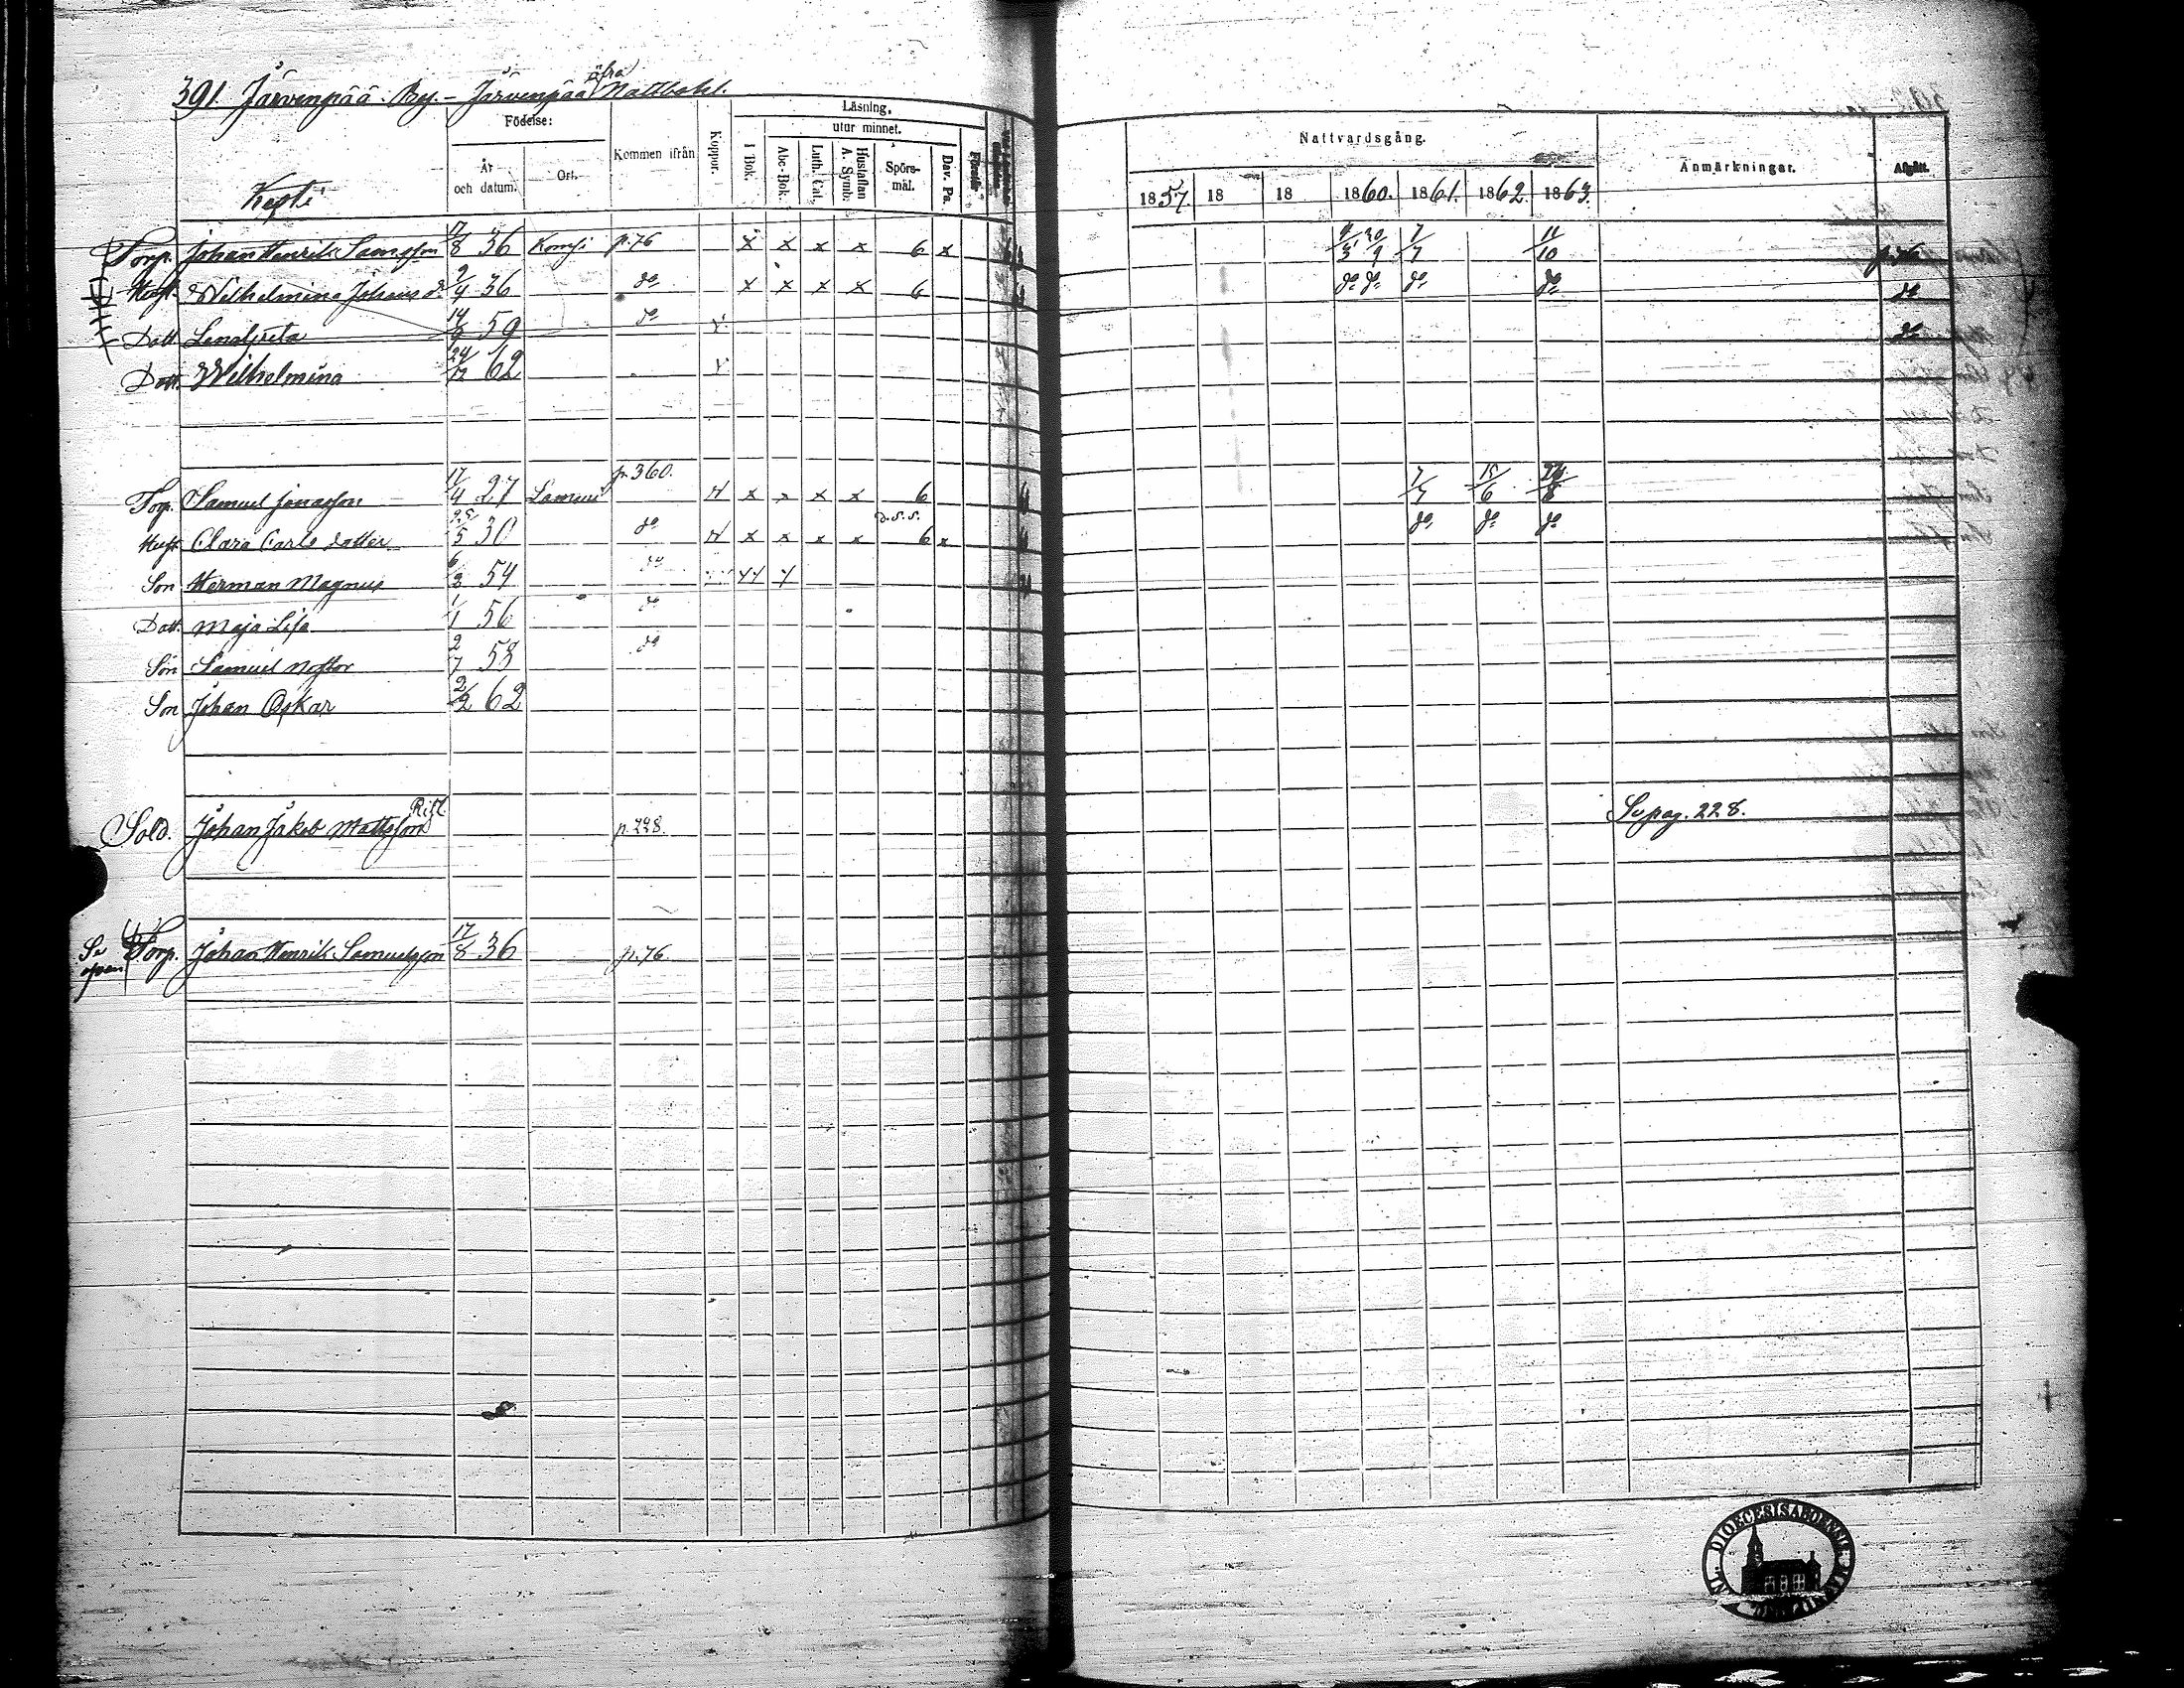 391. Järvenpää By. – Järvenpää öfra Nattbohl.
Födelse: Kommen ifrån Koppor. Läsning,
År och datum. Ort. I Bok. utur minnet.
Abc-Bok. Luth. Cat. Hustaflan A. Symb. Spörs-mål. Dav. Ps. Förstår
Nattvardsgång. Anmärkningar. Afgått.
1857 18 18 1860. 1861. 1862. 1863.
Torp. Johan Henrik Samsson 17/8 36 p. 76 x x x x 6 x 20/9 7/7 11/10
Hust. Wilhelmina Johans d. 2/4 36 do x x x x 6 do do do do do
Dott. Lena Greta 59 do do
Dott. Wilhelmina 24/12 62
Torp. Samuel Jonasson 17/4 27 p. 360. x x x x 6 7/7 15/6
Hust. Clara Carls dotter 30 do x x x x 6 x do do do
Son Herman Magnus 54 do
Dott. Maja Lisa 1/1 56 do
Son Samuel Nestor 2/7 58 do
Son Johan Oskar 2/2 62
Sold. Johan Jakob Mattsson p. 228. Se pag. 228.
Se ofvan Torp. Johan Henrik Samuelsson 17/8 36 p. 76